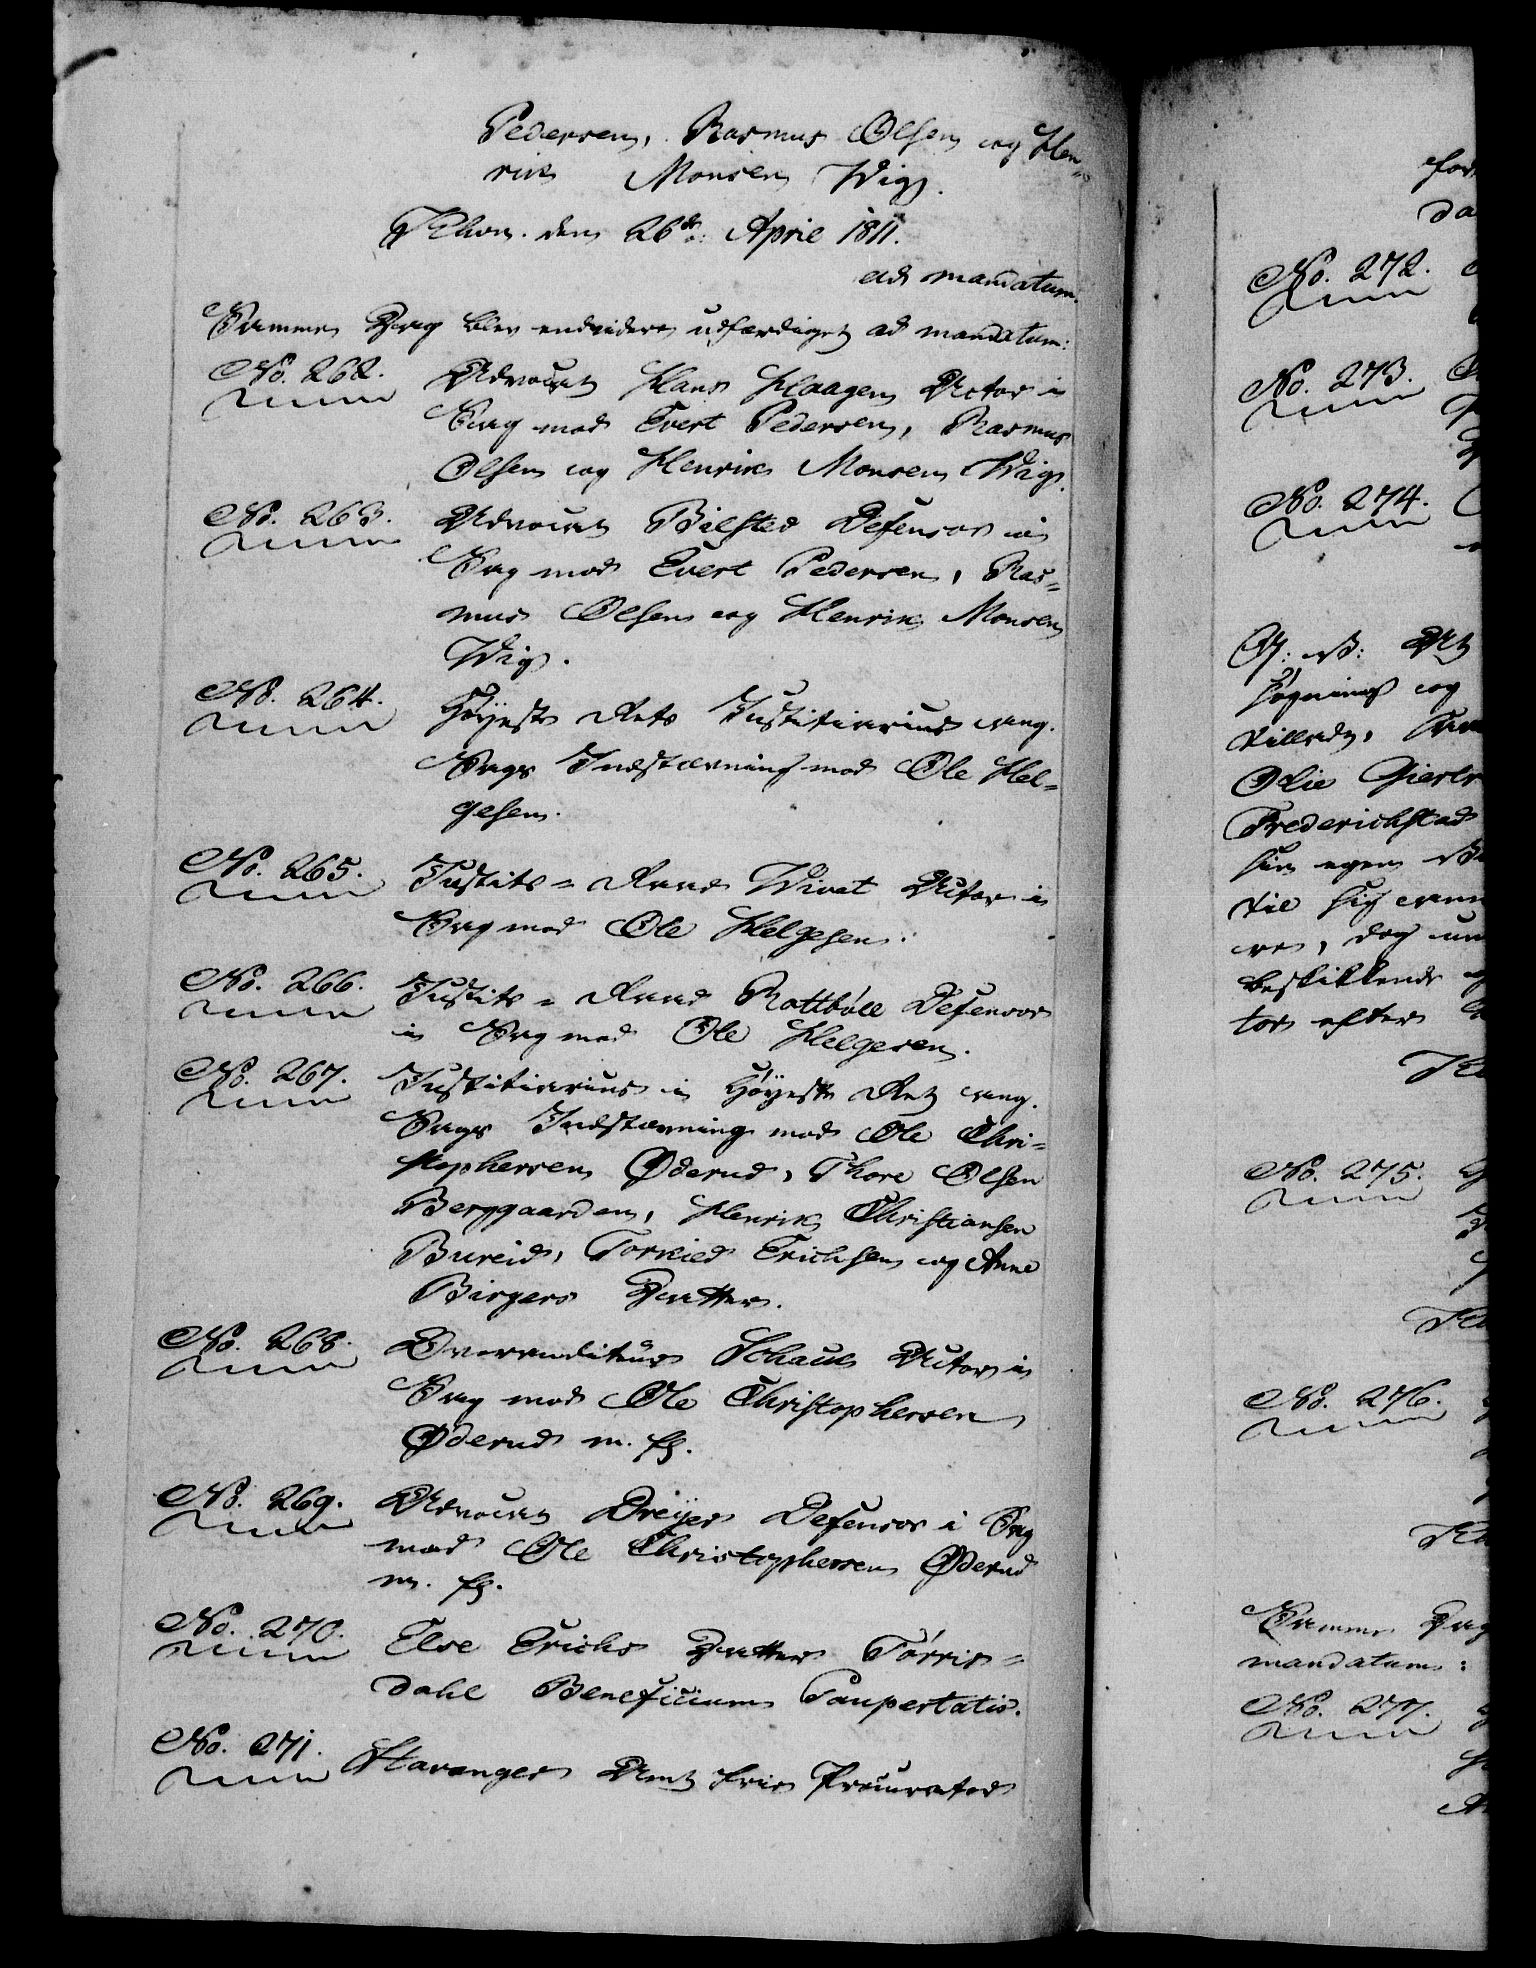 Pedersen, Rasmus Olsen og Hen-
rik Monsen Wig.
Kbhvn. den 26de April 1811.
ad mandatum.
Samme Dag blev endvidere udfærdiget ad mandatum:
No. 262. Advocat Hans Haagen Actor i
Sag mod Evert Pedersen, Rasmus
Olsen og Henrik Monsen Wig.
No. 263. Advocat Bilsted Defensor i
Sag mod Evert Pedersen, Ras-
mus Olsen og Henrik Monsen
Wig.
No. 264. Høyeste Rets Justitiarius ang.
Sags Indstævning mod Ole Hel-
gesen.
No. 265. Justits-Raad Wivet Actor i
Sag mod Ole Helgesen.
No. 266. Justits-Raad Rottbøll Defensor
i Sag mod Ole Helgesen.
No. 267. Justitiarius i Høyeste Ret ang.
Sags Indstævning mod Ole Chri-
stophersen Øderud, Thore Olsen
Berggaarden, Henrik Christiansen
Bureid, Torkied Erichsen og Anne
Birgers Datter.
No. 268. Overauditeur Schack Actor i
Sag mod Ole Christophersen
Øderud m. fl.
No. 269. Advocat Dreijer Defensor i Sag
mod Ole Christophersen Øderud
m. fl.
No. 270. Else Erichs Datter Tørris-
dahl Beneficium Paupertatis.
No. 271. Stavanger Amt frie Procurator
for
da
No. 272.
No. 273.
No. 274.
søgning og
tillade,
Olie
Frederichstad
sin egen
til sig
dog
beskikkende
tor efter
No. 275.
No. 276.
Samme Dag
mandatum:
No. 277.